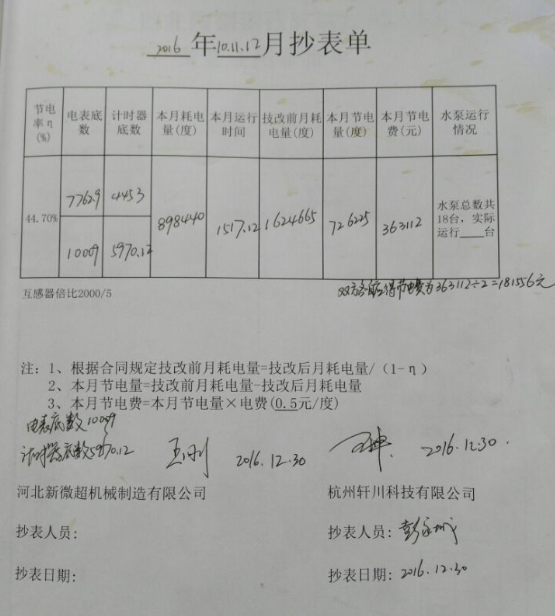 2016 年10.11.12月抄表单
节电率η(%) 电表底数 计时器底数 本月耗电量(度) 本月运行时间 技改前月耗电量(度) 本月节电量(度) 本月节电费(元) 水泵运行情况
44.70% 7762.9 4453 898440 1517.12 1624665 726225 363112 水泵总数共18台，实际运行____台
10009 5970.12
互感器倍比2000/5
双方各应得节电费为363112÷2=181556元
注：1、根据合同规定技改前月耗电量=技改后月耗电量/（1-η）
2、本月节电量=技改前月耗电量-技改后月耗电量
3、本月节电费=本月节电量×电费(0.5元/度)
电表底数10009
计时器底数5970.12 2016.12.30 2016.12.30.
河北新微超机械制造有限公司 杭州轩川科技有限公司
抄表人员: 抄表人员:
抄表日期: 抄表日期: 2016.12.30